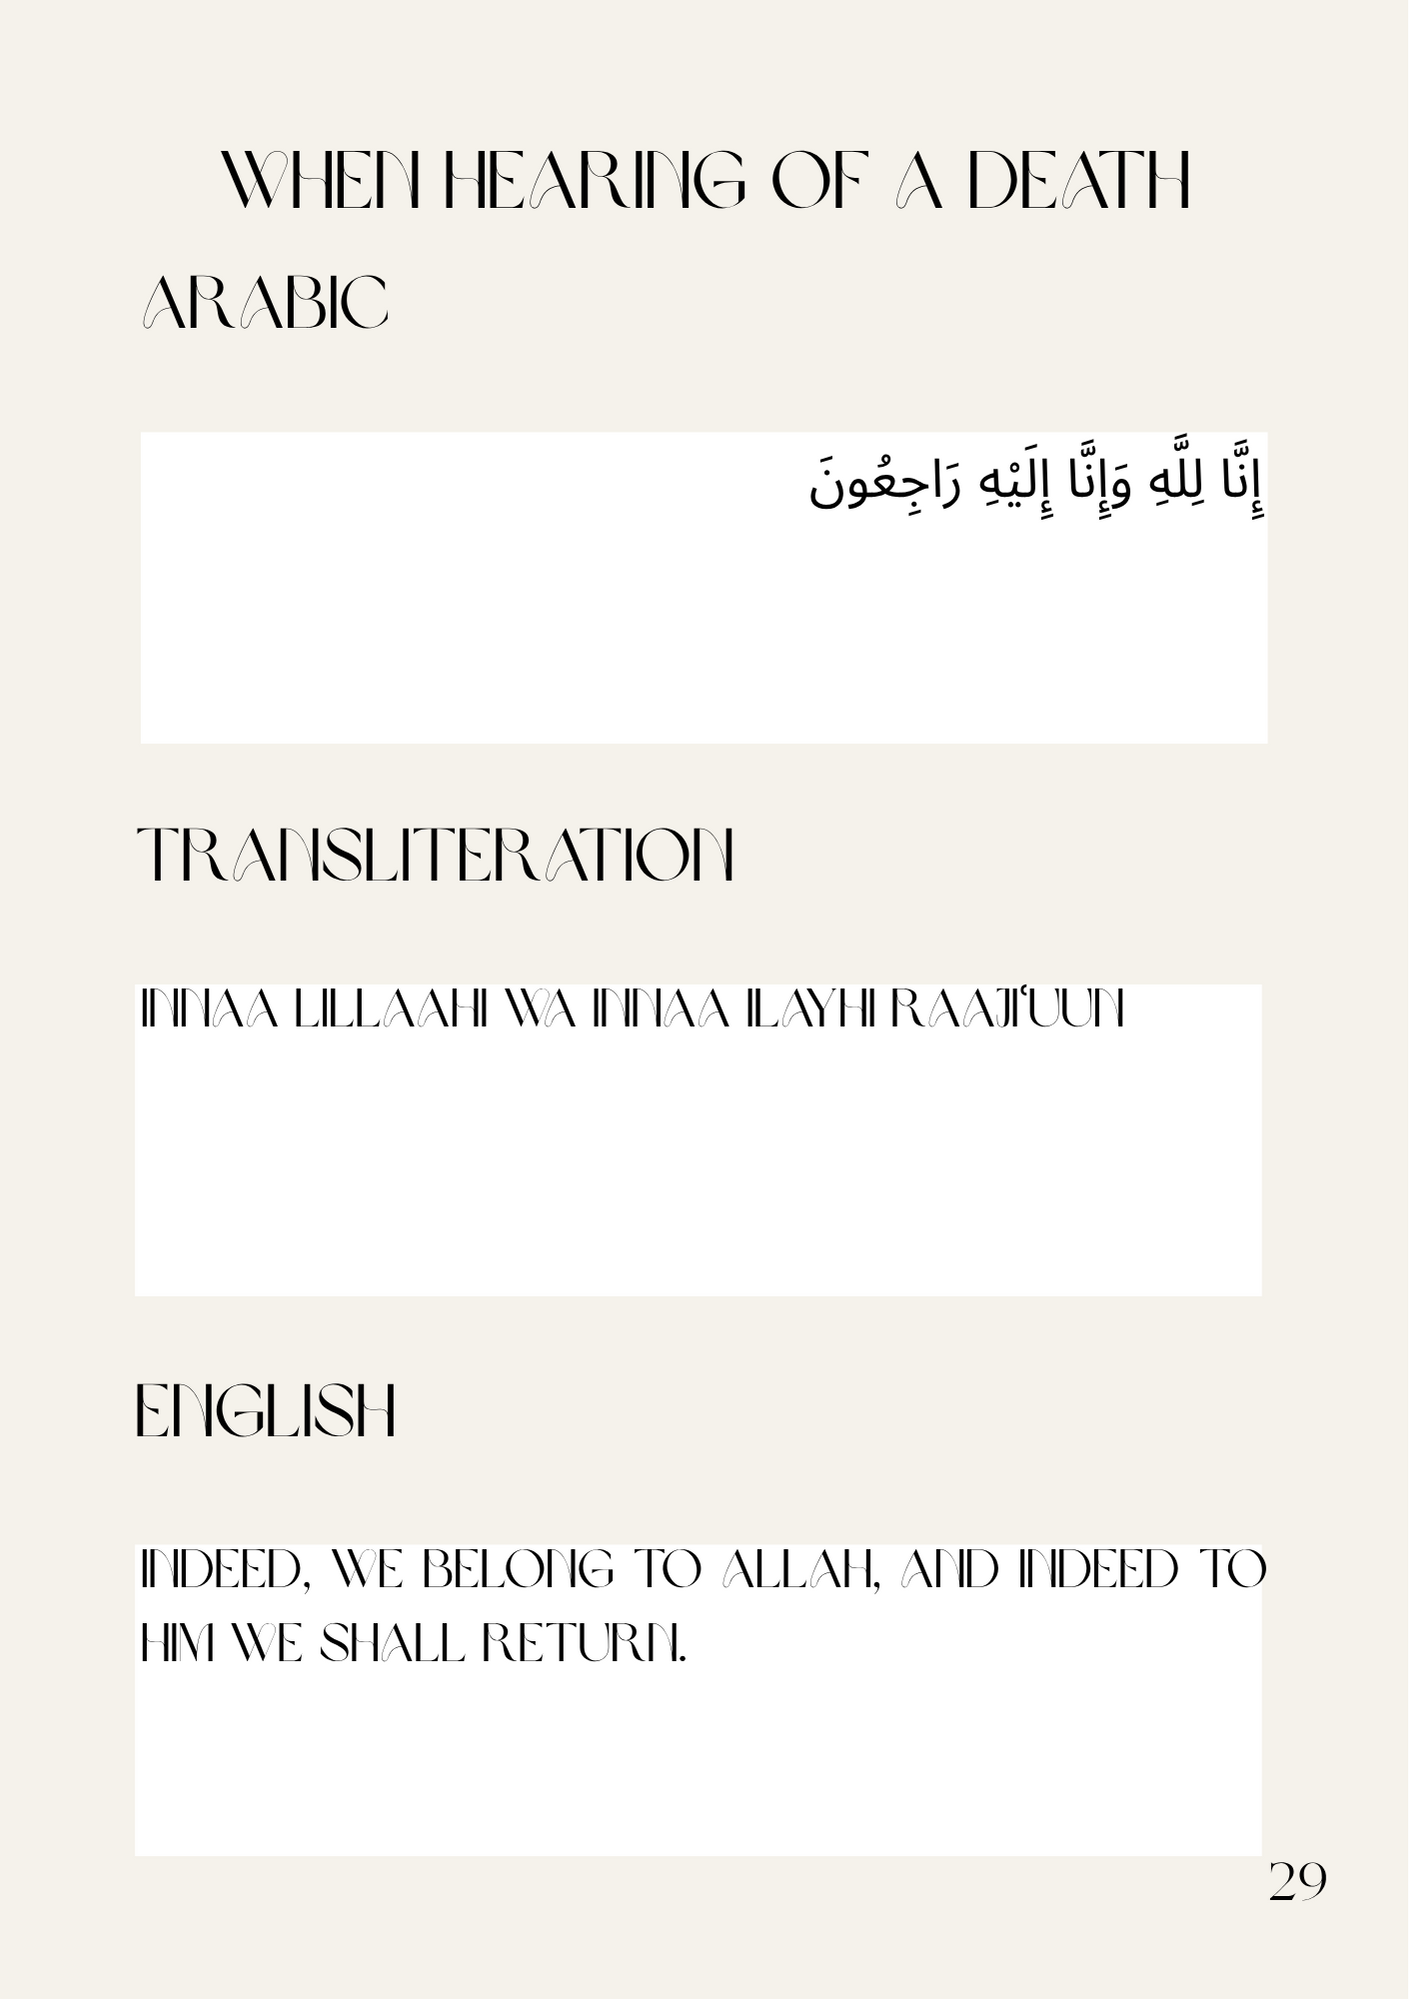 WHEN HEARING OF A DEATH
ARABIC
إِنَّا لِلَّهِ وَإِنَّا إِلَيْهِ رَاجِعُونَ
TRANSLITERATION
INNAA LILLAAHI WA INNAA ILAYHI RAAJI‘UUN
ENGLISH
INDEED, WE BELONG TO ALLAH, AND INDEED TO
HIM WE SHALL RETURN.
29